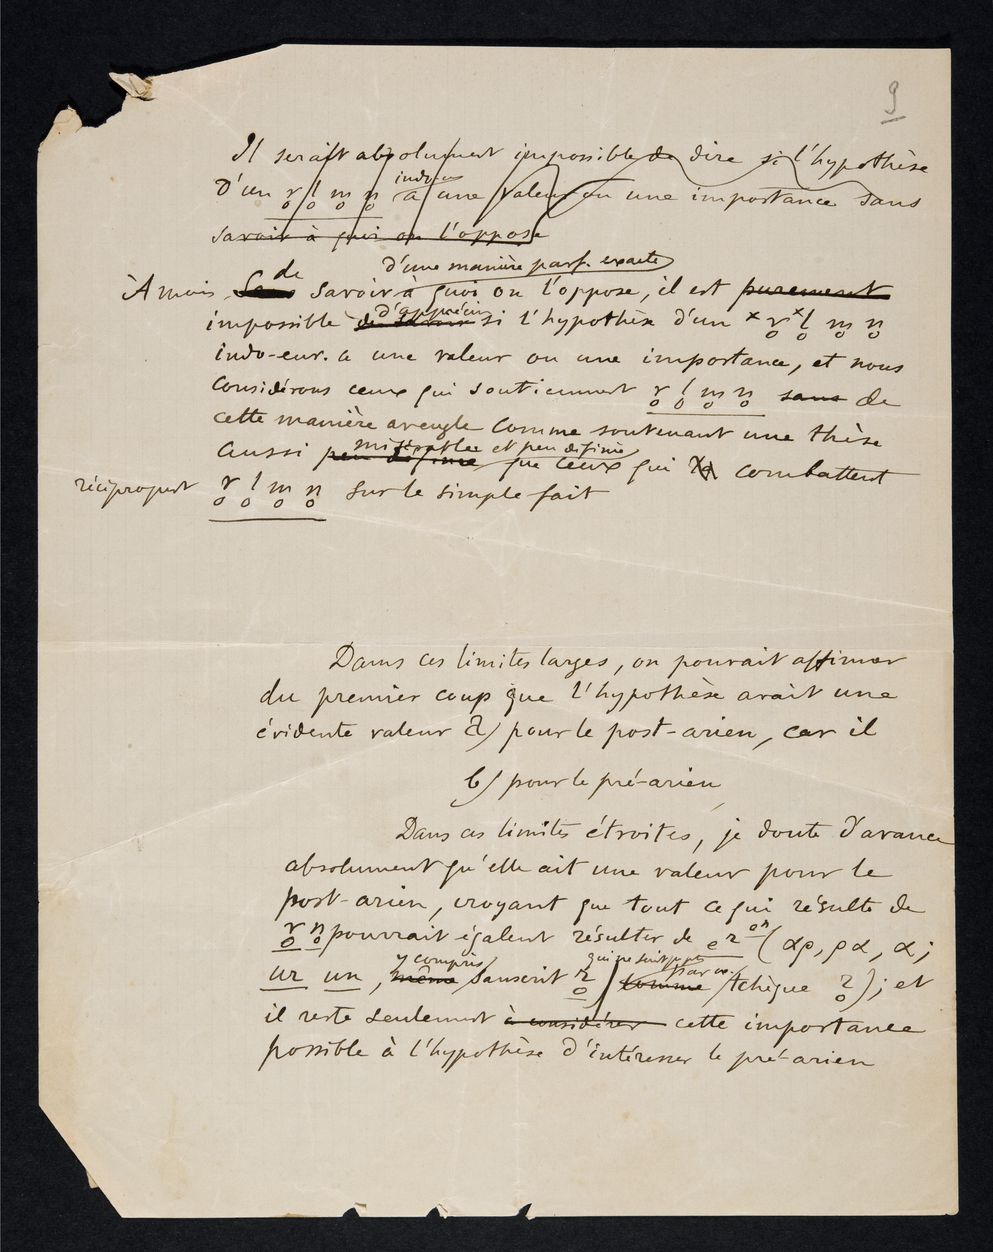 9
Il serait absolument impossible de dire si l'hypothèse
indo-eur
D'un r̥ l̥ m̥ n̥ a une valeur ou une importance sans
savoir à quoi on l'oppose
d'une manière parf. exacte
À moins, Sans de savoir à quoi on l'oppose, il est purement
d'apprécier
impossible de savoir si l'hypothèse d'un * r̥ * l̥ m̥ n̥
indo-eur. a une valeur ou une importance, et nous
considérons ceux qui soutiennent r̥ l̥ m̥ n̥ sans de
cette manière aveugle comme soutenant une thèse
misérable et peu définie
aussi peu définie que ceux qui combattent
réciproqut r̥ l̥ m̥ n̥ sur le simple fait
Dans ces limites larges, on pouvait affirmer
du premier coup que l'hypothèse avait une
évidente valeur a) pour le post-arien, car il
b) pour le pré-arien
Dans ces limites étroites, je doute d'avance
absolument qu'elle ait une valeur pour le
post-arien, croyant que tout ce qui résulte de
r̥ n̥ pouvrait égalent résulter de er en (αρ, ρα, α;
y compris
ur un, même sanscrit r̥ comme tchèque r̥); et
il reste seulement à considérer cette importance
possible à l'hypothèse d'intéresser le pré-arien